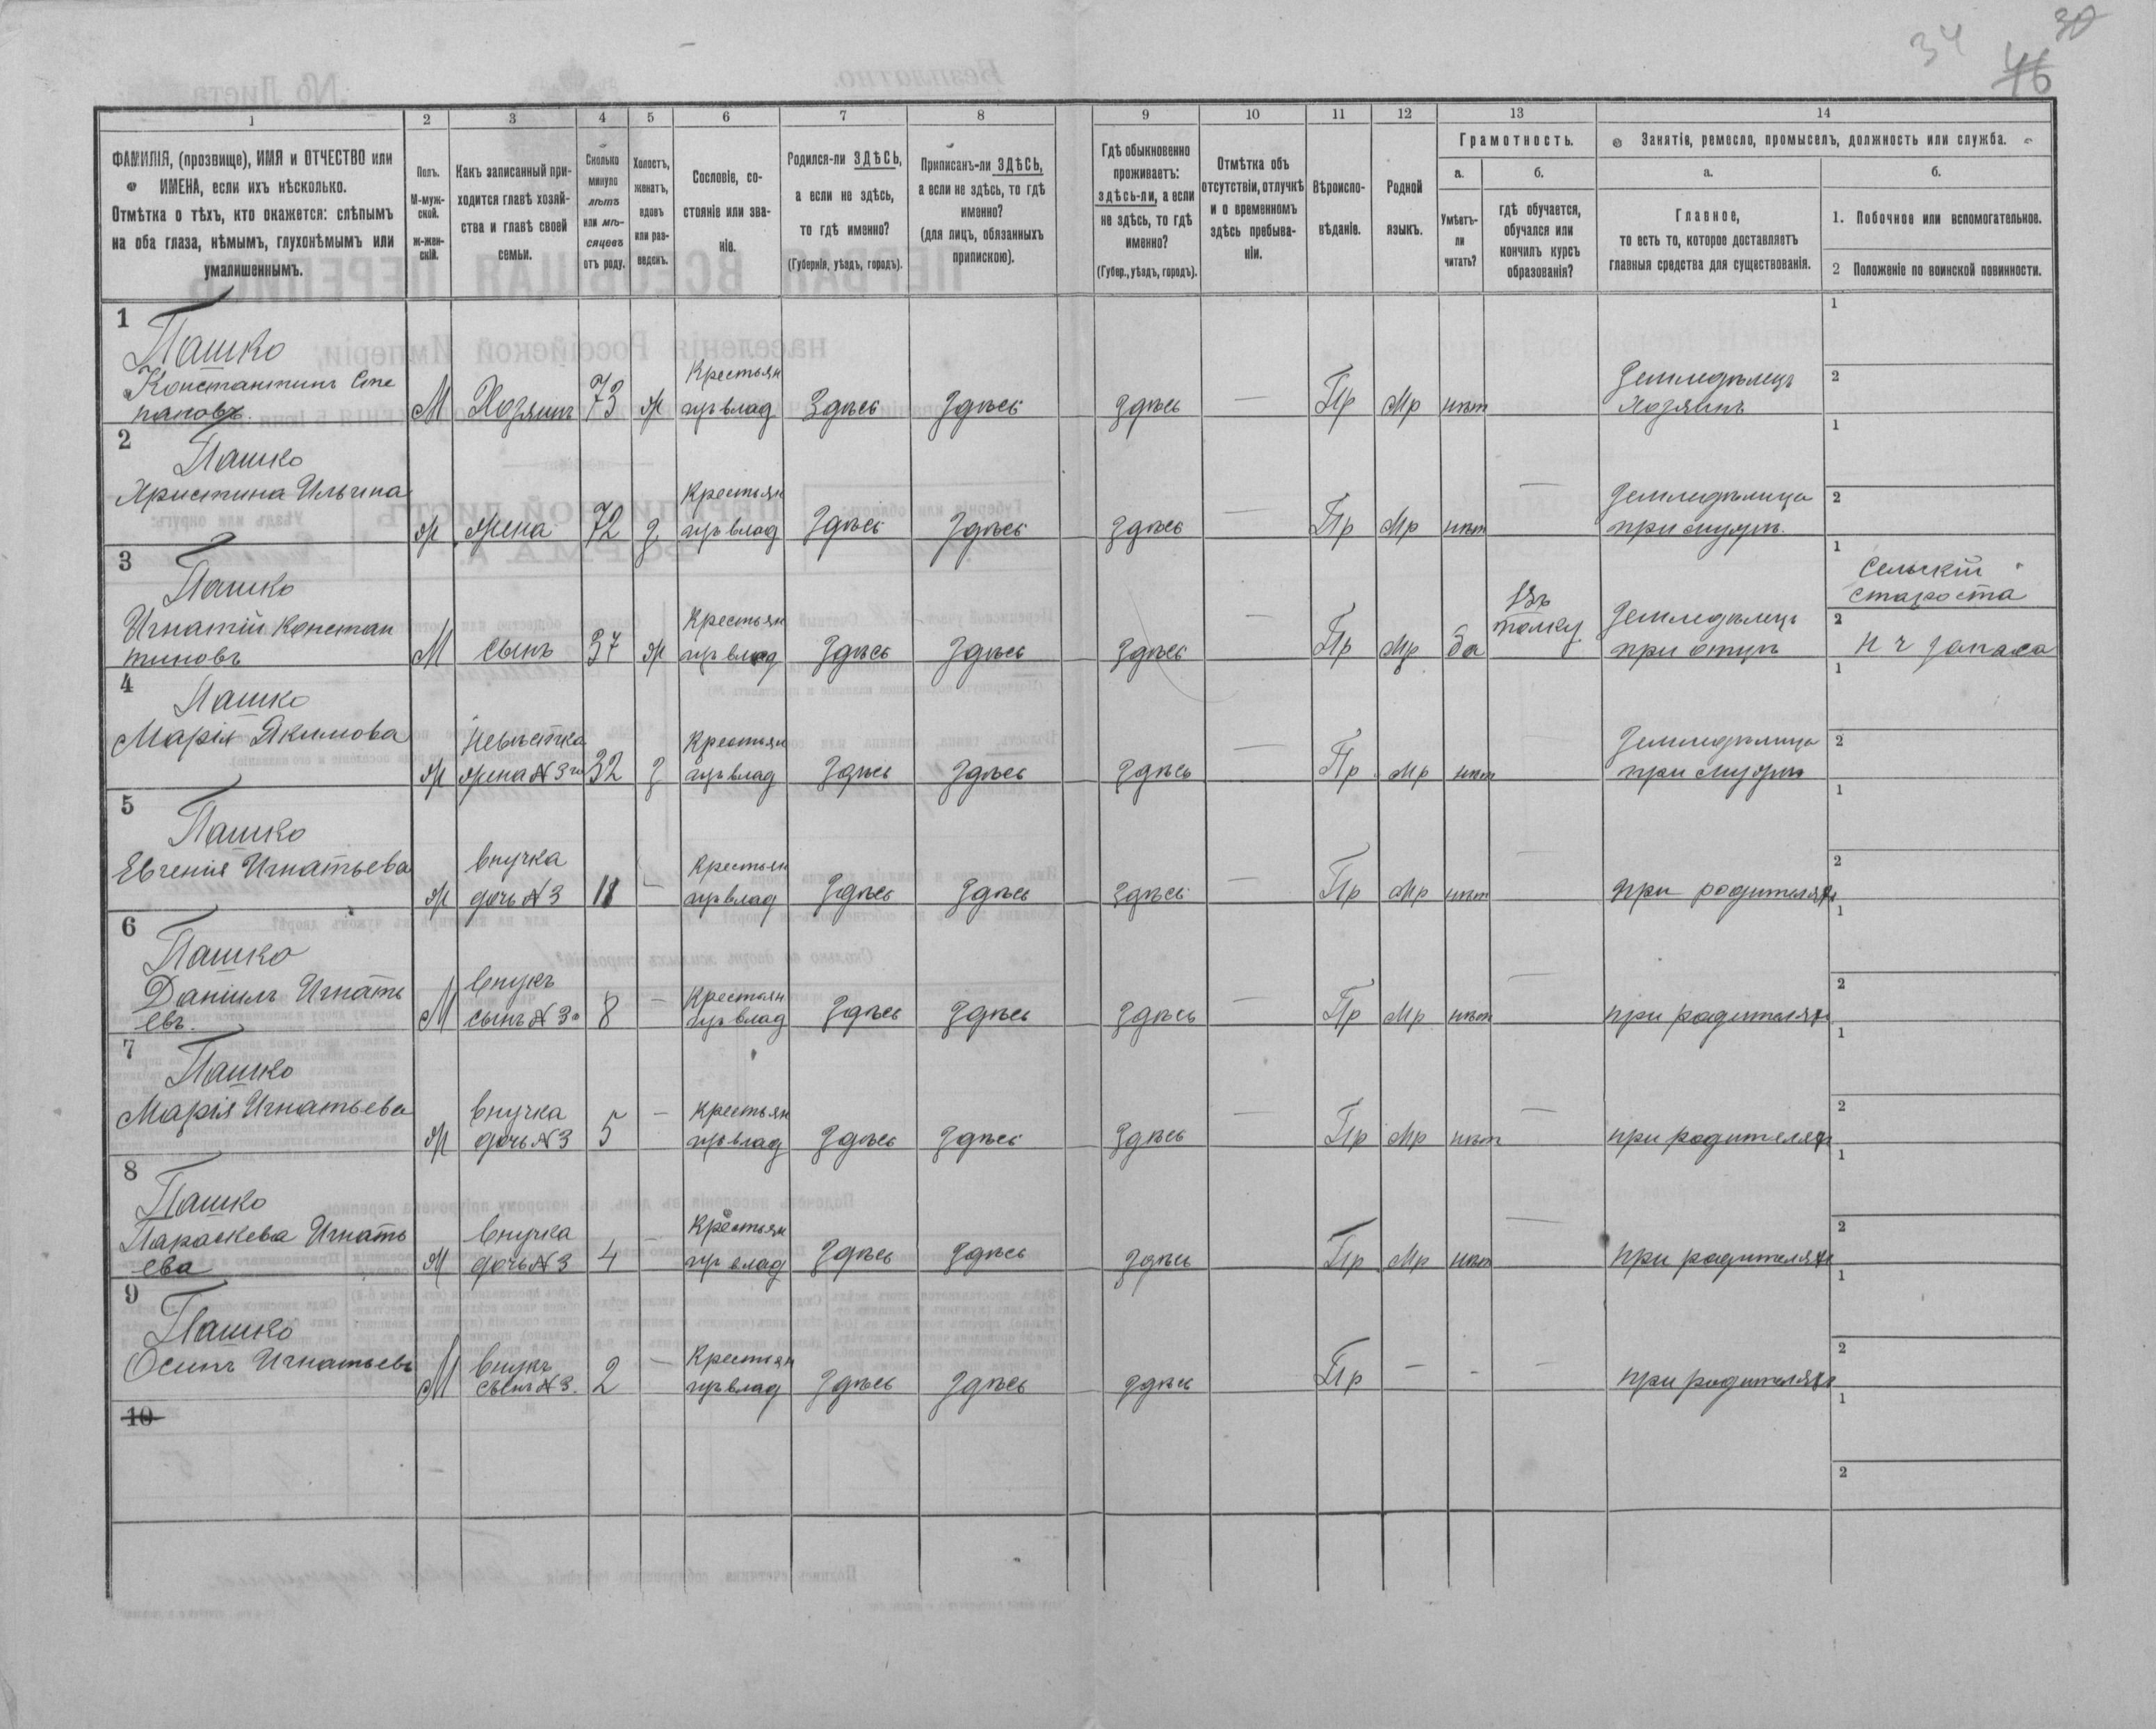 34
30
46
1 2 3 4 5 6 7 8 9 10 11 12 13 14
ФАМИЛІЯ, (прозвище), ИМЯ и ОТЧЕСТВО или
ИМЕНА, если ихъ нѣсколько.
Отмѣтка о тѣхъ, кто окажется: слѣпымъ
на оба глаза, нѣмымъ, глухонѣмымъ или
умалишеннымъ.
Полъ.
М-муж-
ской.
ж-жен-
скій.
Какъ записанный при-
ходится главѣ хозяй-
ства и главѣ своей
семьи.
Сколько
минуло
лѣтъ
или мѣ-
сяцевъ
отъ роду.
Холостъ,
женатъ,
вдовъ
или раз-
веденъ.
Сословіе, со-
стояніе или зва-
ніе.
Родился-ли ЗДѢСЬ,
а если не здѣсь,
то гдѣ именно?
(Губернія, уѣздъ, городъ).
Приписанъ-ли ЗДѢСЬ,
а если не здѣсь, то гдѣ
именно?
(для лицъ, обязанныхъ
припискою).
Гдѣ обыкновенно
проживаетъ:
здѣсь-ли, а если
не здѣсь, то гдѣ
именно?
(Губер., уѣздъ, городъ).
Отмѣтка объ
отсутствіи, отлучкѣ
и о временномъ
здѣсь пребыва-
ніи.
Вѣроиспо-
вѣданіе.
Родной
языкъ.
Грамотность.
а.
Умѣетъ-
ли
читать?
б.
гдѣ обучается,
обучался или
кончилъ курсъ
образованія?
Занятіе, ремесло, промыселъ, должность или служба.
а.
Главное,
то есть то, которое доставляетъ
главныя средства для существованія.
б.
1. Побочное или вспомогательное.
2 Положеніе по воинской повинности.
1
Пашко
Константинъ Сте
пановъ.
М Хозяинъ 73 ж
Крестьян
изъ влад
Здѣсь Здѣсь Здѣсь — Пр Мр нѣт
Земледѣлецъ
хозяинъ
1
2
2
Пашко
Христина Ильина
ж жена 72 з
Крестьян
изъ влад
Здѣсь Здѣсь Здѣсь — Пр Мр нѣт —
Земледѣлица
при мужѣ.
1
2
3
Пашко
Игнатій Констан
тиновъ
М сынъ 37 ж
Крестьян
изъ влад
Здѣсь Здѣсь Здѣсь — Пр Мр Да
въ
полку
Земледѣлецъ
при отцѣ
1
Сельскій
староста
2
н ч запаса
4
Пашко
Марія Якимова
ж
невѣстка
жена № 3го
32 з
Крестьян
изъ влад
Здѣсь Здѣсь Здѣсь — Пр Мр нѣт —
Земледѣлица
при мужѣ
1
2
5
Пашко
Евгенія Игнатьева
ж
внучка
дочь № 3
11 —
Крестьян
изъ влад
Здѣсь Здѣсь Здѣсь — Пр Мр нѣт —
при родителях
1
2
6
Пашко
Даніилъ Игнать
евъ.
М
внукъ
сынъ № 3
8 —
Крестьян
изъ влад
Здѣсь Здѣсь Здѣсь — Пр Мр нѣт —
при родителях
1
2
7
Пашко
Марія Игнатьева
ж
внучка
дочь № 3
5 —
Крестьян
изъ влад
Здѣсь Здѣсь Здѣсь — Пр Мр нѣт —
при родителях
1
2
8
Пашко
Параскева Игнать
ева
ж
внучка
дочь № 3
4 —
Крестьян
изъ влад
Здѣсь Здѣсь Здѣсь Пр Мр нѣт —
при родителях
1
2
9
Пашко
Осипъ Игнатьевъ
М
внукъ
сынъ № 3.
2 —
Крестьян
изъ влад
Здѣсь Здѣсь Здѣсь Пр — - —
при родителях
1
2
10
1
2